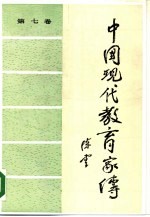 第七卷
中国现代教育家傳
陈云